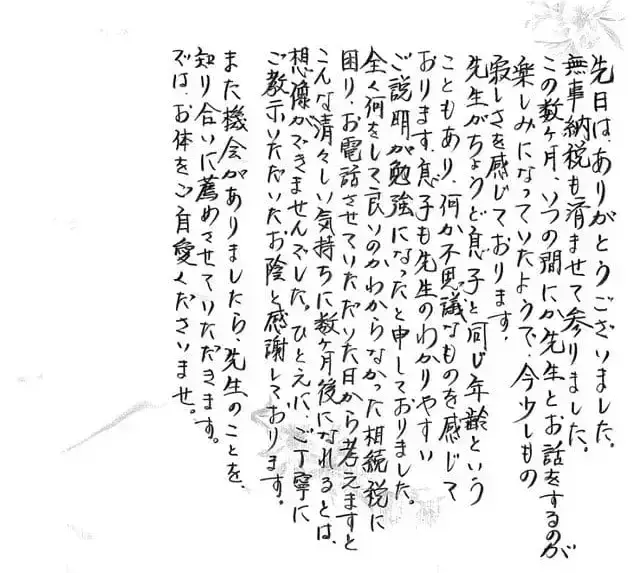 先日は、ありがとうございました。
無事納税も済ませて参りました。
この数ヶ月、いつの間にか先生とお話をするのが
楽しみになっていたようで、今少しもの
寂しさを感じております。
先生がちょうど息子と同じ年齢という
こともあり、何か不思議なものを感じて
おります。息子も先生のわかりやすい
ご説明が勉強になったと申しておりました。
全く何をして良いのかわからなかった相続税に
困り、お電話させていただいた日から考えますと
こんな清々しい気持ちに数ヶ月後になれるとは、
想像ができませんでした。ひとえに、ご丁寧に
ご教示いただいたお陰と感謝しております。
また機会がありましたら、先生のことを、
知り合いに薦めさせていただきます。
では、お体をご自愛くださいませ。